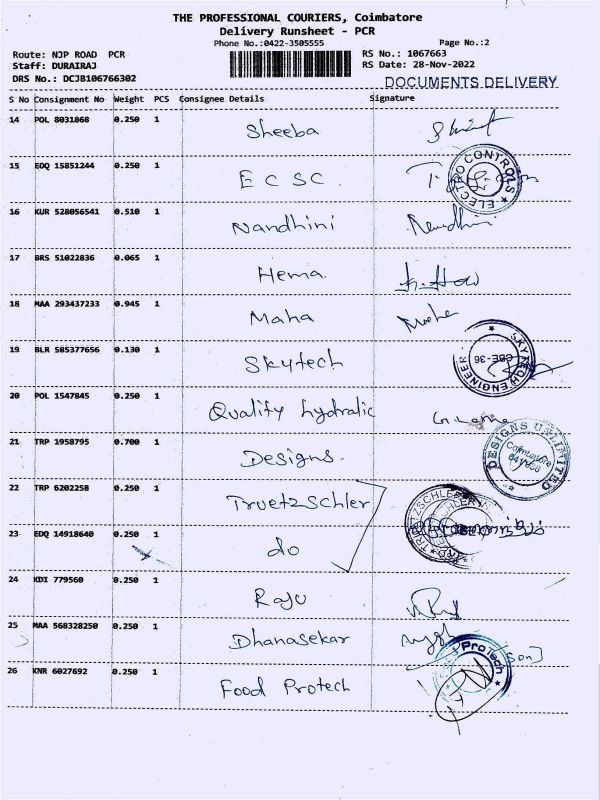 THE PROFESSIONAL COURIERS, Coimbatore
Delivery Runsheet - PCR
Phone No.:0422-3505555
Page No.:2
Route: NJP ROAD PCR
RS No.: 1067663
Staff: DURAIRAJ
RS Date: 28-Nov-2022
DRS No.: DCJB106766302
DOCUMENTS DELIVERY
S No Consignment No Weight PCS Consignee Details Signature
14 POL 8031868 0.250 1 Sheeba
15 EDQ 15851244 0.250 1 E C S C .
ELECTRO CONTROLS
16 KUR 528056541 0.510 1 Nandhini Nandhini
17 BRS 51022836 0.065 1 Hema
18 MAA 293437233 0.945 1 Maha Maha
19 BLR 585377656 0.130 1 Skytech
SKYTECH ENGINEER
CBE-36
20 POL 1547845 0.250 1 Quality hydralic
21 TRP 1958795 0.700 1 Designs.
DESIGNS UNLIMITED
Coimbatore
22 TRP 6202258 0.250 1 Truetzschler
TRUETZSCHLER
23 EDQ 14918640 0.250 1 do
24 KDI 779560 0.250 1 Raju
25 MAA 568328250 0.250 1 Dhanasekar
[Son]
26 KNR 6027692 0.250 1 Food Protech
Pro Tech